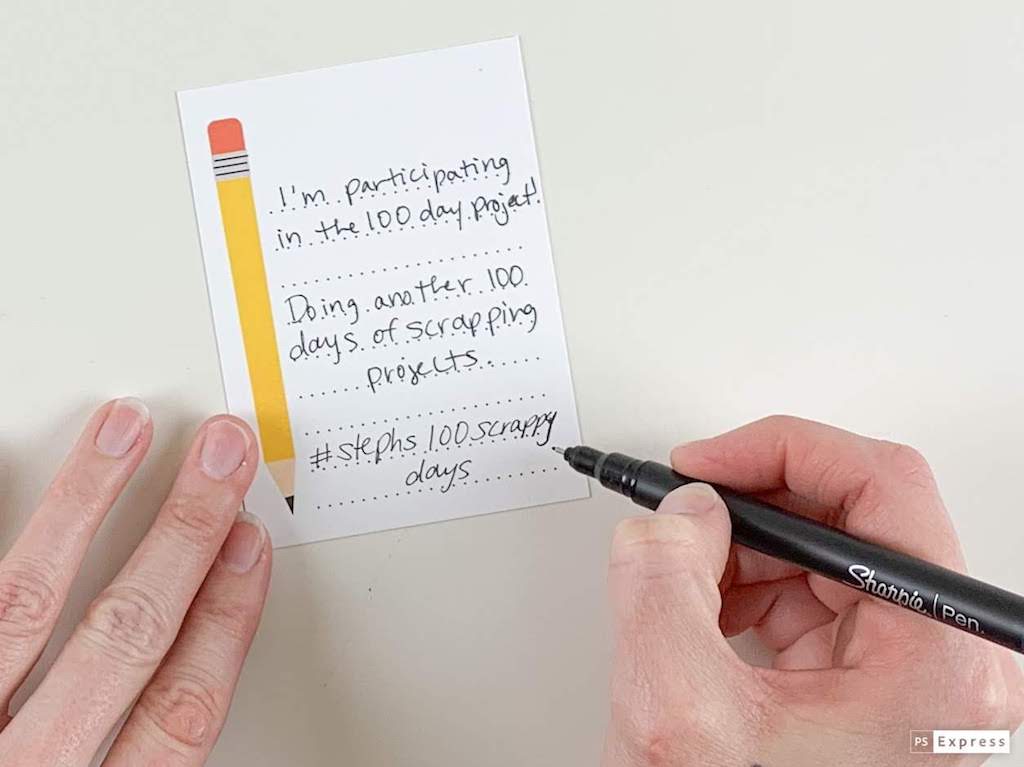 I'm participating
in the 100 day project!
Doing another 100
days of scrapping
projects.
#stephs 100 scrappy
days
Sharpie | Pen.
PS Express